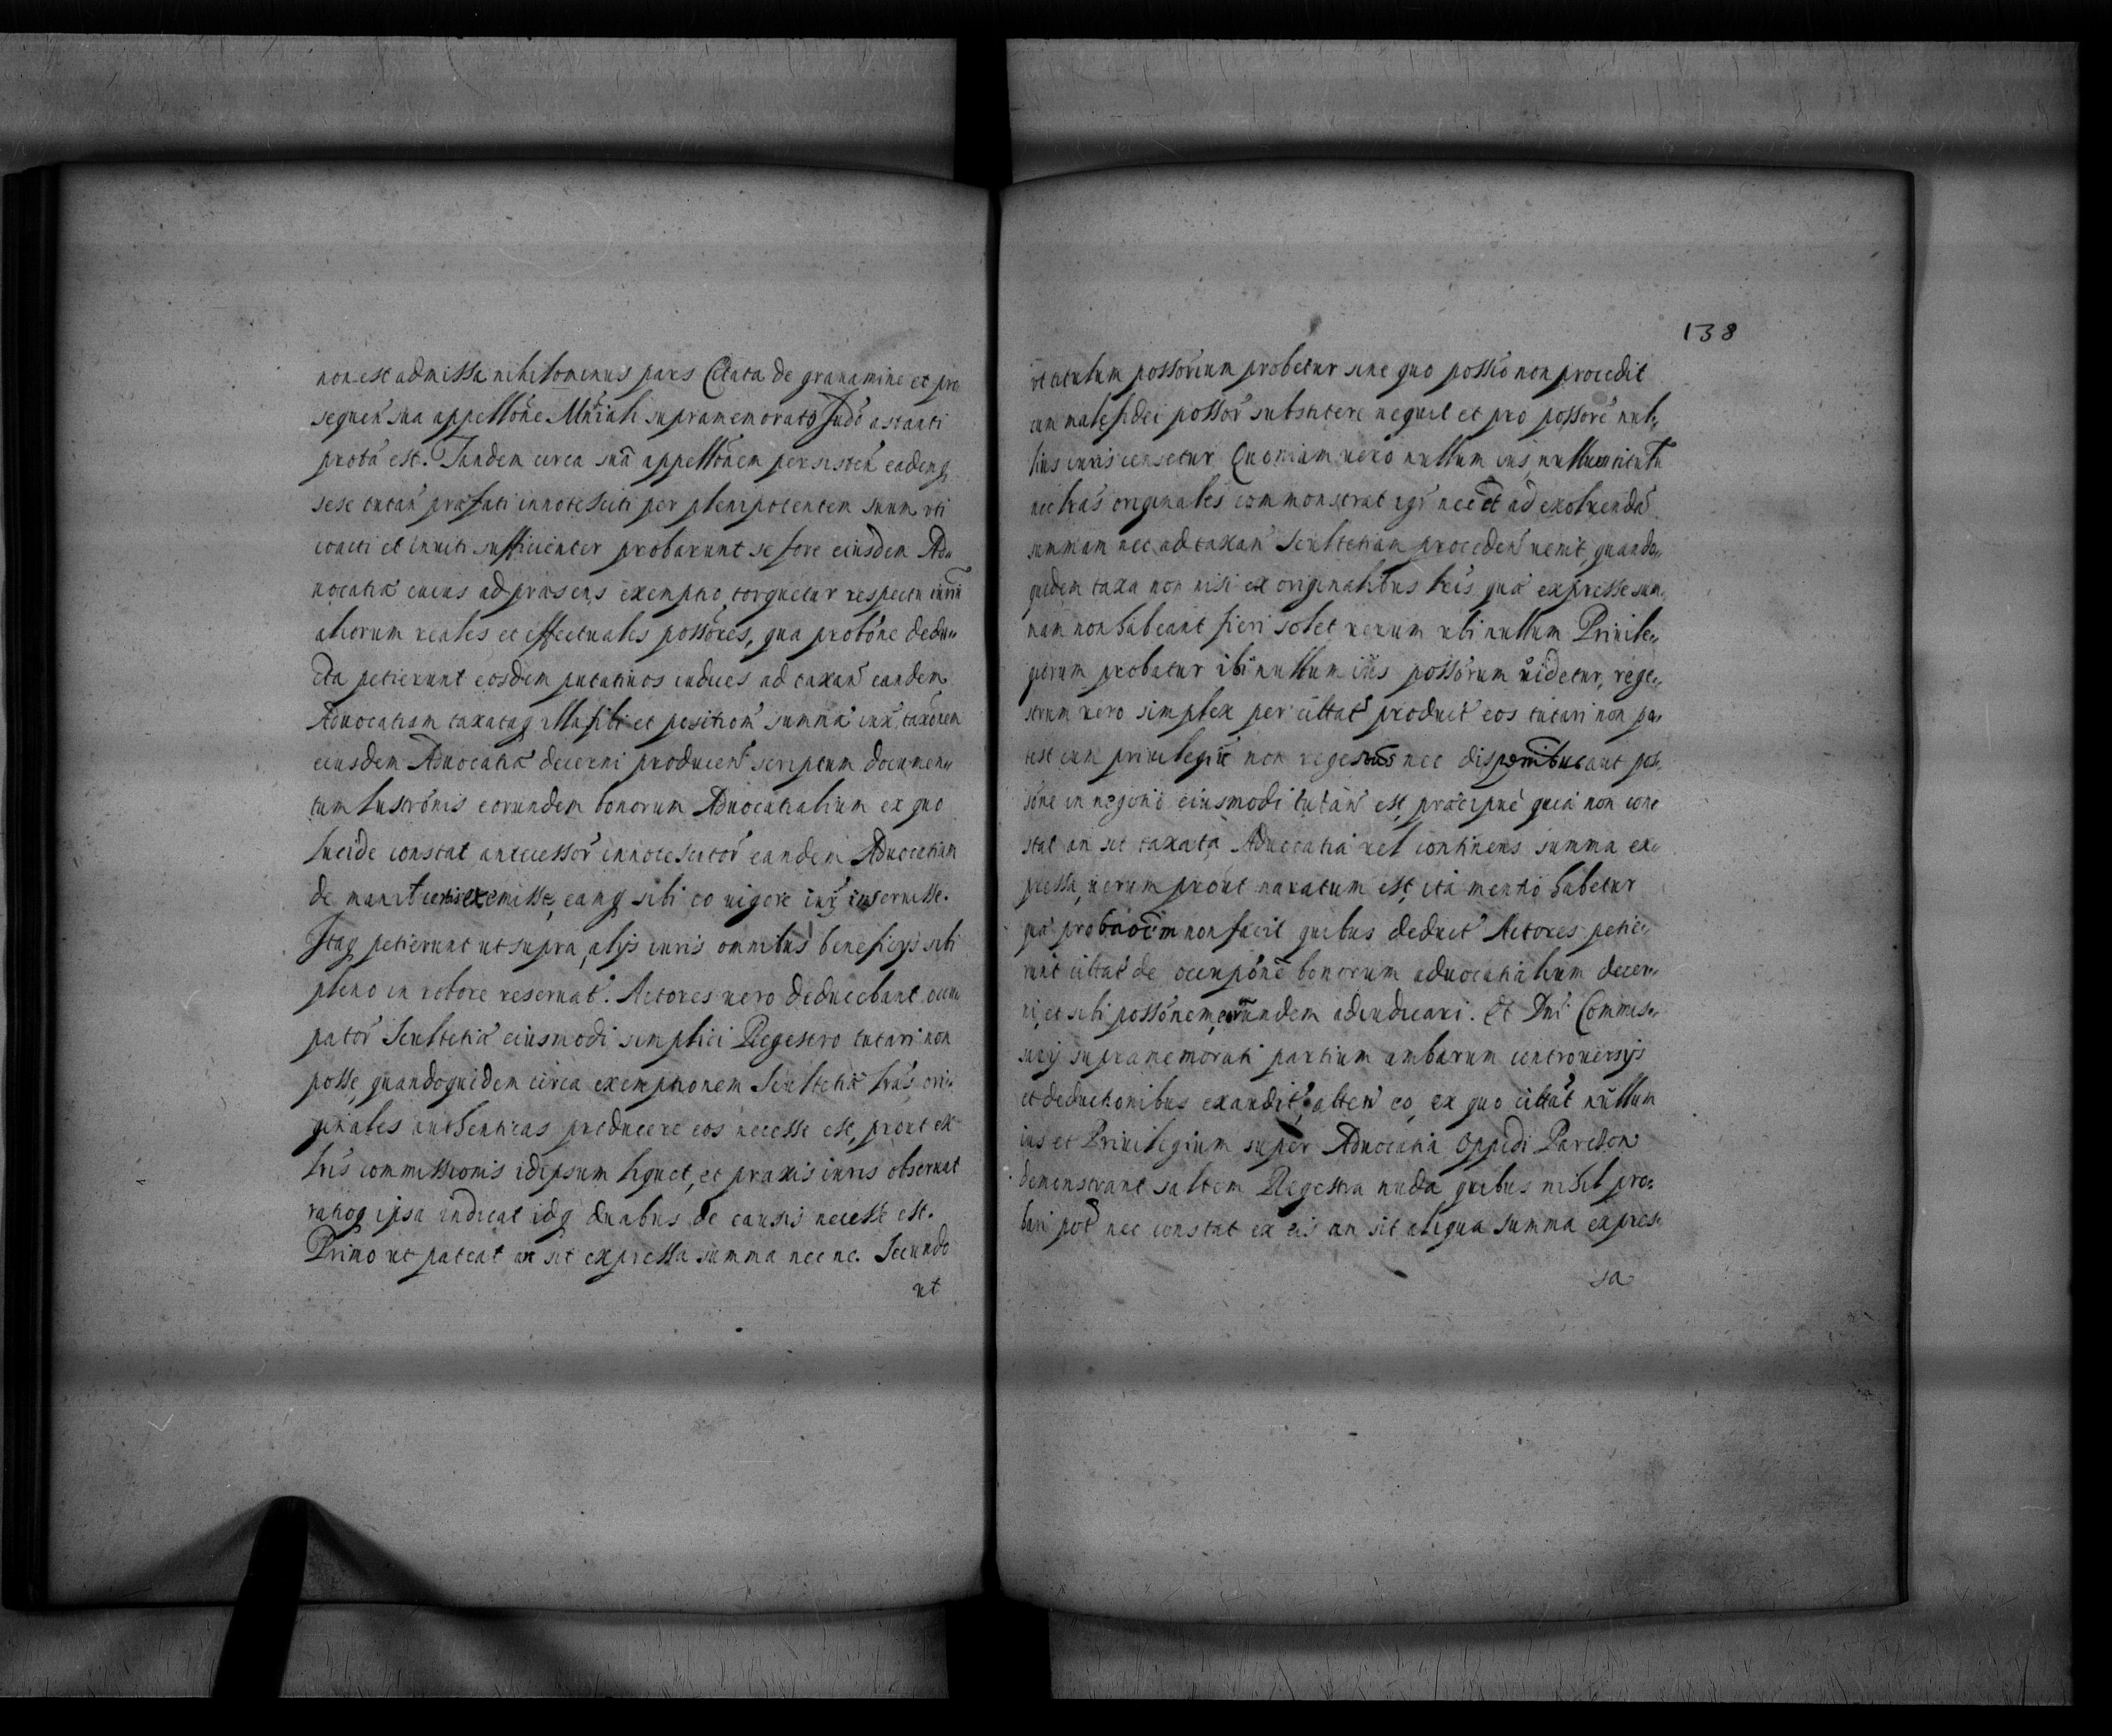 non est admissa nihilominus pars Citata de grauamine et pro
sequen sua appellõne Mñiali supramemorato Judõ astanti
probã est. Tandem circa suã appellõnem persisten eademq
sese tutañ præfati innotesciti per plenipotentem suum uti
coacti et inuiti sufficienter probarunt se fore eiusdem Adu
uocatiæ cuius ad præsens exemptio torquetur respectu
aliorum reales et effectuales possõres, qua probõne dedu„
cta petierunt eosdem putatiuos iudices ad taxañ eandem
Aduocatiam taxataq illa sibi et position summa iux taxõnem
eiusdem Aduocatiæ decerni producen scriptum documen„
tum lustrõnis eorundem bonorum Aduocatialium ex quo
lucide constat antecessor innotescitor eandem Aduocatiam
de manib exemisse, eamq sibi eo uigore inseruisse.
Itaq petierunt ut supra, alijs iuris omnibus beneficijs sibi
pleno in robore reseruat. Actores uero deducebant occu„
pator Scultetiæ eiusmodi simplici Regestro tutari non
posse, quandoquidem circa exemptionem Scultetiæ lras ori„
ginales authenticas producere eos necesse est, prout ex
lris commissionis idipsum liquet, et praxis iuris obseruat
ratioq ipsa indicat idq duabus de causis necesse est.
Primo ut pateat an sit expressa summa nec ne. Secundo
ut
138
ut titulum possorium probetur sine quo possio non procedit
cum malæ fidei possor subsistere nequit et pro possore nul„
lius iuris censetur Quoniam uero nullum ius, nullum titulu
nec lras originales commonstrat igr nec et ad exoluenda
summam nec ad taxan Scultetiam proceden uenit, quando„
quidem taxa non nisi ex originalibus lris quæ expresse sum„
mam non habeant fieri solet uerum ubi nullum Priuile„
gium probatur ibi nullum ius possorum uidetur, rege„
strum uero simplex per citat producit eos tutari non po„
test cum priuilegijs non regestris nec aut pos„
sõne in negotio eiusmodi tutañ est, præcipue quia non con
stat an sit taxata Aduocatia uel continens summa ex„
pressa, uerum prout naratum est, ita mentio habetur
quæ probaõem non facit quibus deduct Actores petie„
runt citat de occupõne bonorum aduocatialium decer„
ni, et sibi possõnem eorundem adiudicari. Et Dni Commis„
sarij supramemorati partium ambarum controuersijs
et deductionibus exaudit, atten eo, ex quo citat nullum
ius et Priuilegium super Aduocatia Oppidi Parchow
demonstrant saltem Regestra nuda quibus nihil pro„
bari pot nec constat ex eis an sit aliqua summa expres„
sa